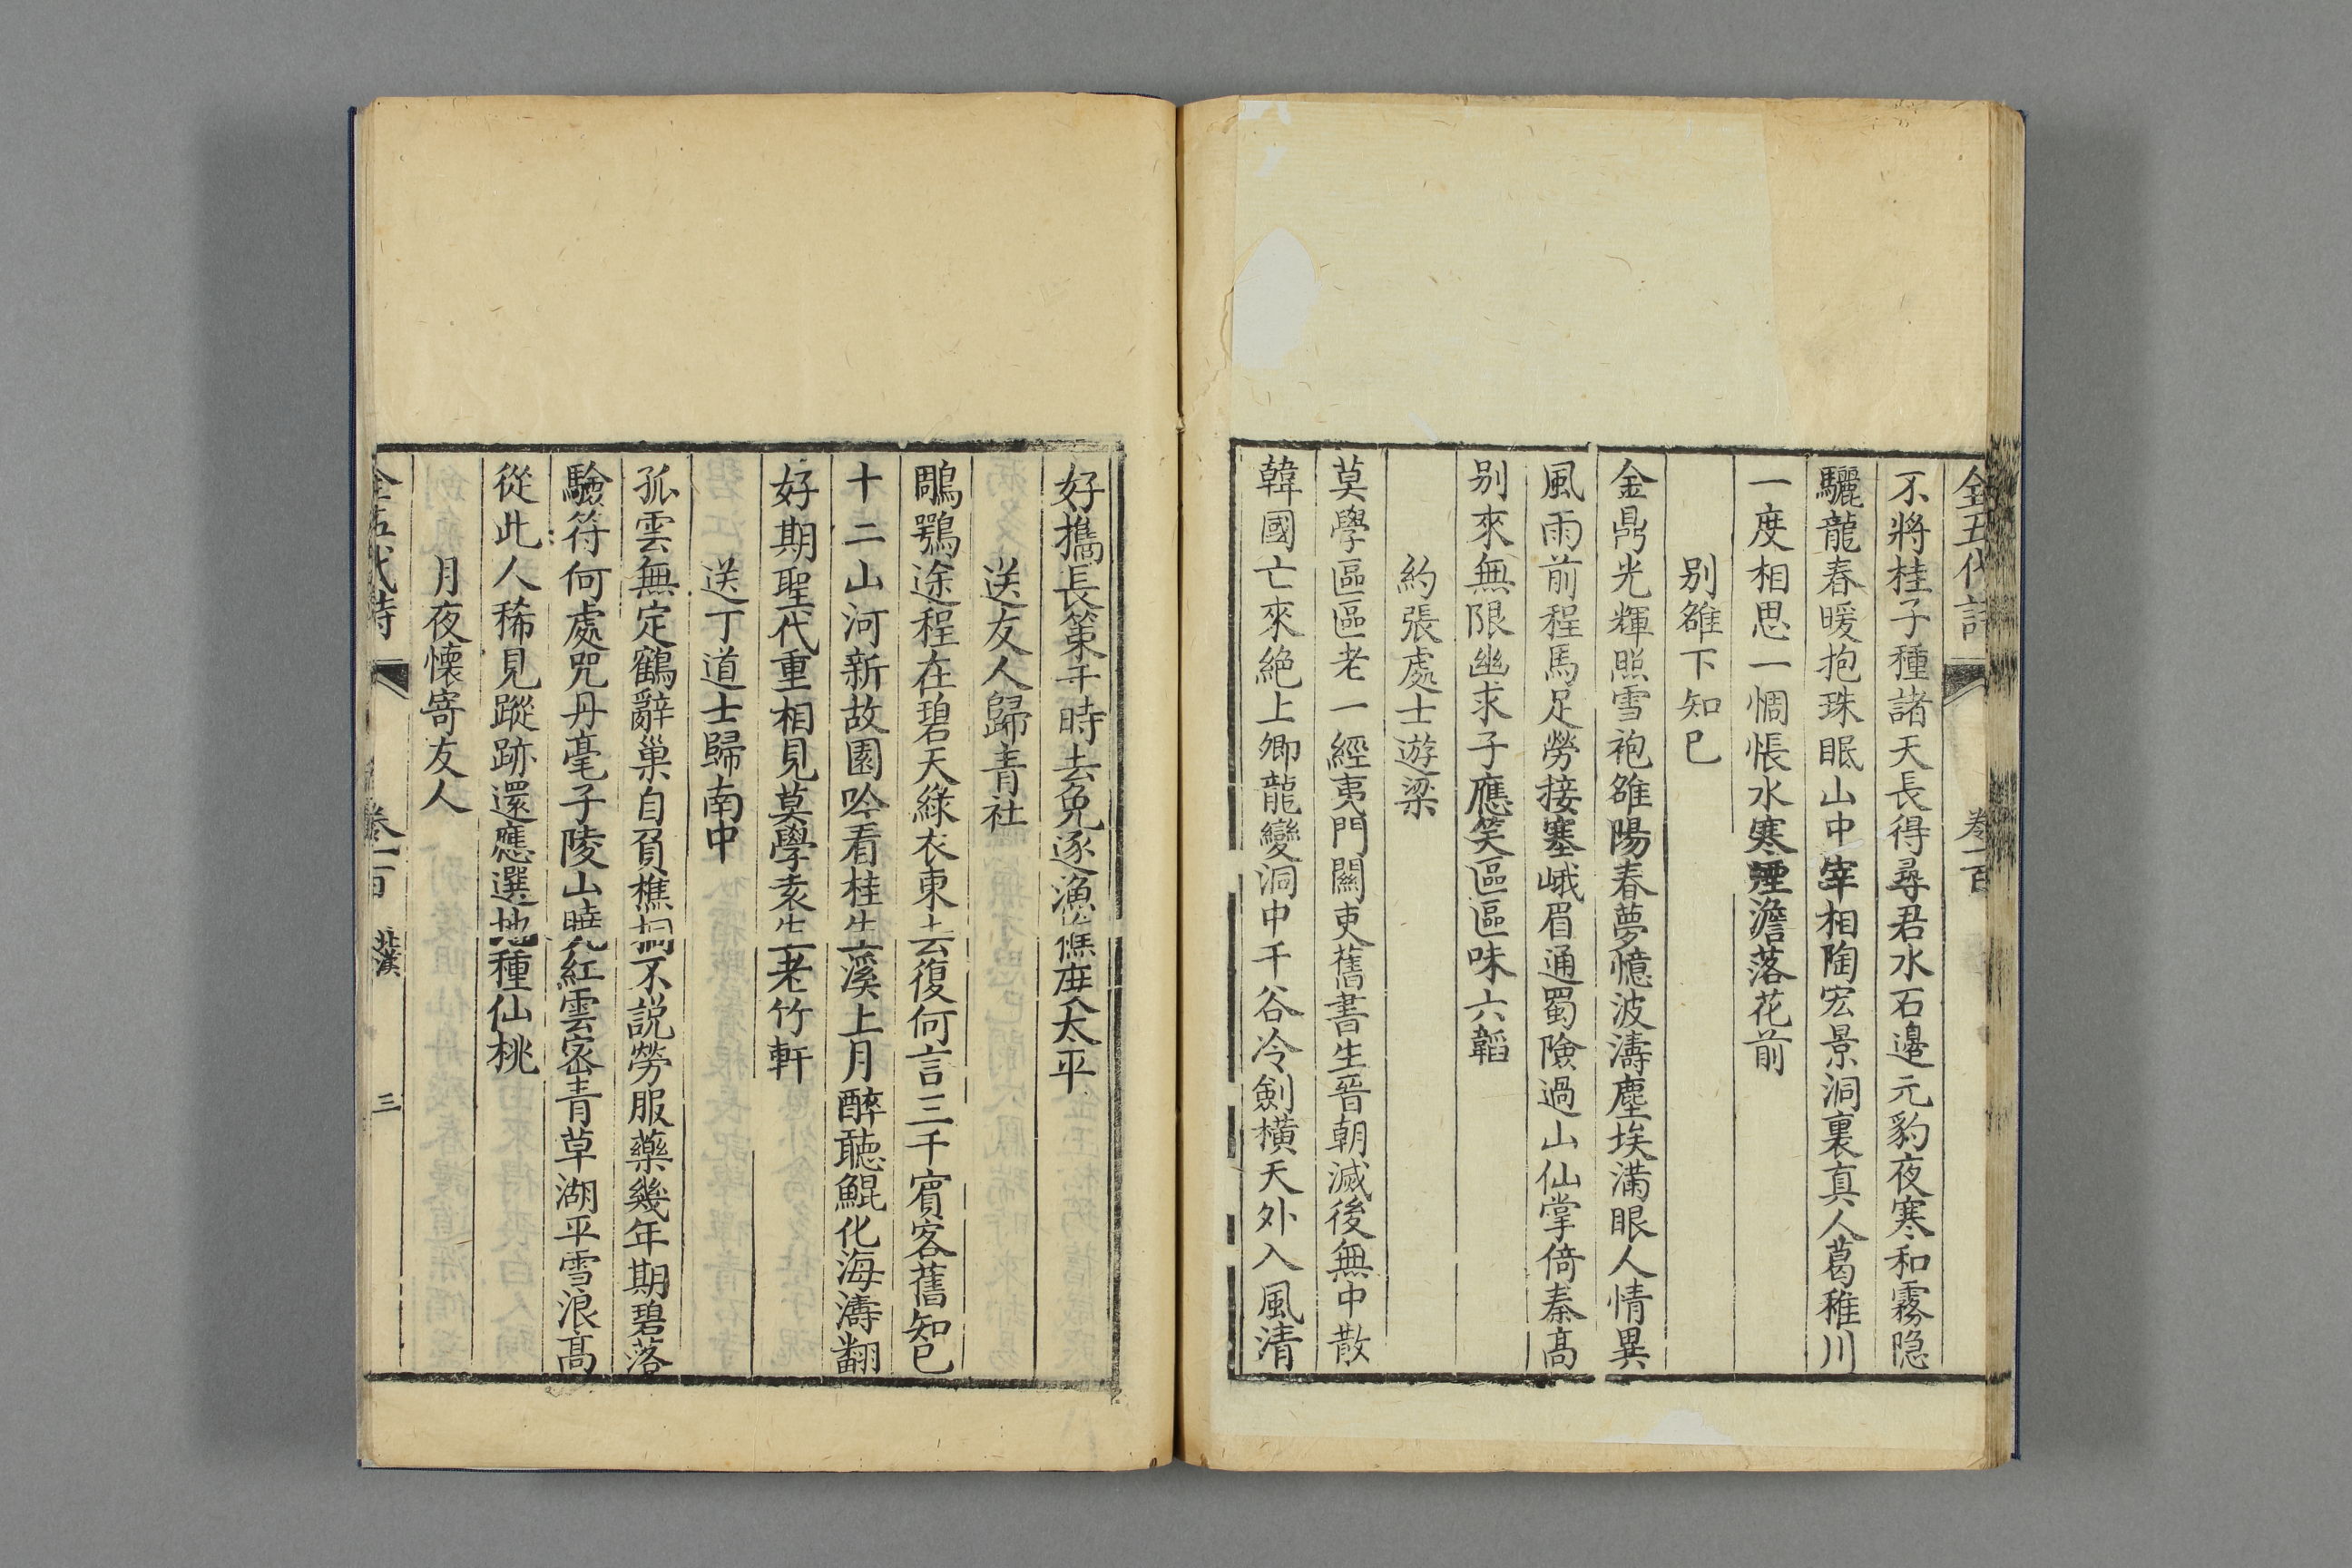 全五代詩 卷一百
不將桂子種諸天長得尋君水石邊元豹夜寒和霧隐
驪龍春暖抱珠眠山中宰相陶宏景洞裏真人葛稚川
一度相思一惆悵水寒煙澹落花前
别雒下知已
金鼎光輝照雪袍雒陽春夢憶波濤塵埃滿眼人情異
風雨前程馬足勞接塞峨眉通蜀險過山仙掌倚秦髙
别來無限幽求子應笑區區味六韜
約張處士遊梁
莫學區區老一經夷門關吏舊書生晉朝滅後無中散
韓國亡來絶上卿龍變洞中千谷冷劍横天外入風清
好攜長策干時去免逐漁樵度太平
送友人歸青社
鵰鶚途程在碧天綵衣東去復何言三千賓客舊知已
十二山河新故園吟看桂生溪上月醉聽鯤化海濤翻
好期聖代重相見莫學袁生老竹軒
送丁道士歸南中
孤雲無定鶴辭巢自負樵桐不説勞服藥幾年期碧落
驗符何處咒丹毫子陵山曉紅雲密青草湖平雪浪髙
從此人稀見蹤跡還應選地種仙桃
月夜懐寄友人
全五代詩 卷一百 北漢 三